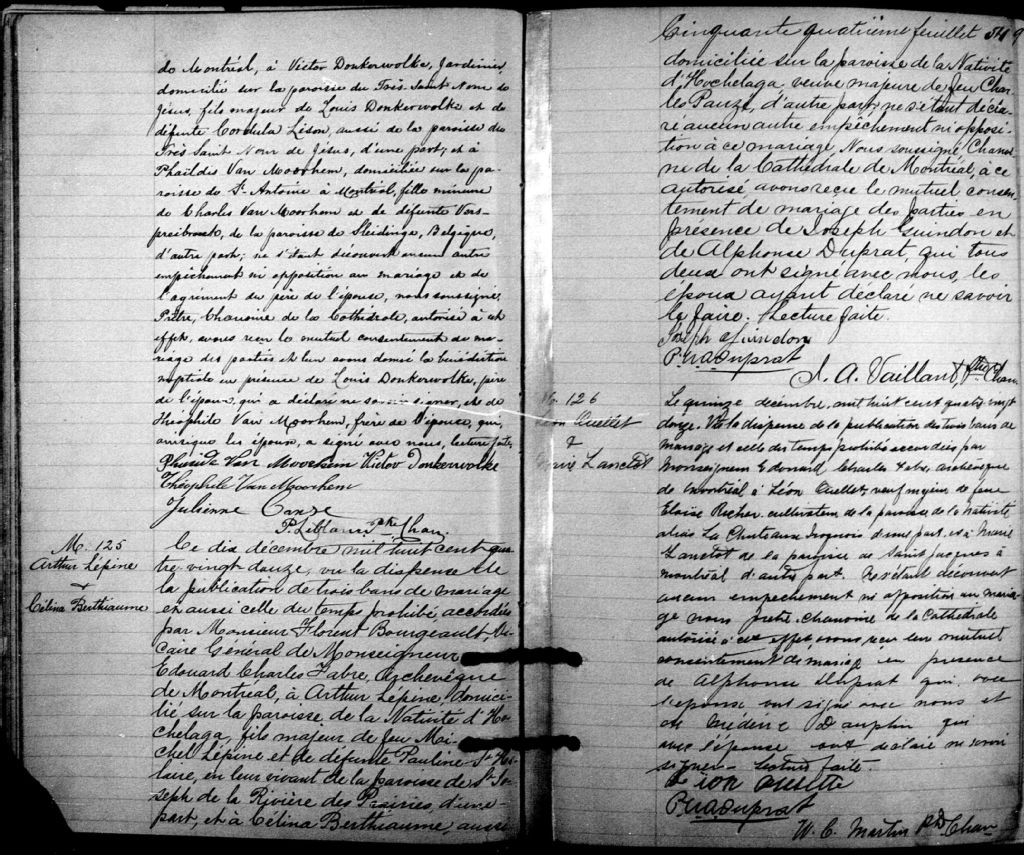 de Montréal, à Victor Donkerwolke, Jardinier
domicilié sur la paroisse du Très Saint Nom de
Jésus, fils majeur de Louis Donkerwolke et de
défunte Cordula Lison, aussi de la paroisse du
Très Saint Nom de Jésus, d'une part, et à
Phaildis Van Moorhem, domiciliée sur la pa-
roisse de St Antoine à Montréal, fille mineure
de Charles Van Moorhem et de défunte Vers-
preibrouk, de la paroisse de Sleidinge, Belgique,
d'autre part; ne s'étant découvert aucun autre
empêchement ni opposition au mariage et de
l'agrément du père de l'épouse, nous soussigné,
Prêtre, Chanoine de la Cathédrale, autorisé à cet
effet, avons reçu le mutuel consentement de ma-
riage des parties et leur avons donné la bénédiction
nuptiale en présence de Louis Donkerwolke, père
de l'époux, qui a déclaré ne savoir signer, et de
Théophile Van Moorhem, frère de l'épouse, qui,
ainsi que les époux, a signé avec nous, lecture faite.
Van Moorhem Victor Donkerwolke
Théophile Van Moorhem
Julienne
P. Leblanc Ptre Chan.
M. 125
Arthur Lépine
+
Célina Berthiaume
Le dix décembre mil huit cent qua-
tre vingt douze, vu la dispense de
la publication de trois bans de mariage
et aussi celle du temps prohibé, accordées
par Monsieur Florent Bourgeault Vi-
caire Général de Monseigneur
Edouard Charles Fabre, Archevêque
de Montréal, à Arthur Lépine, domici-
lié sur la paroisse de la Nativité d'Ho-
chelaga, fils majeur de feu Mi-
chel Lépine et de défunte Pauline St Hi-
laire, en leur vivant de la paroisse de St Jo-
seph de la Rivière des Prairies, d'une
part, et à Célina Berthiaume, aussi
Cinquante quatrième feuillet 54
domiciliée sur la paroisse de la Nativité
d'Hochelaga, veuve majeure de feu Char-
les Pauzé, d'autre part, ne s'étant décla-
ré aucun autre empêchement ni opposi-
tion à ce mariage, Nous soussigné, Chanoi-
ne de la Cathédrale de Montréal, à ce
autorisé avons reçu le mutuel consen-
tement de mariage des parties en
présence de Joseph Guindon et
de Alphonse Duprat, qui tous
deux ont signé avec nous, les
époux ayant déclaré ne savoir
le faire. Lecture faite.
Joseph Guindon
P. U. A. Duprat
J. A. Vaillant, Ptre Chan.
M. 126
Léon Ouellet
+
Marie Lanctot
Le quinze décembre, mil huit cent quatre vingt
douze. Vu la dispense de la publication des trois bans de
mariage et celle du temps prohibé accordées par
Monseigneur Edouard Charles Fabre, archevêque
de Montréal à Léon Ouellet, veuf majeur de feue
Eloise Richer cultivateur de la paroisse de la nativité
d'une part, et à Marie
Lanctot de la paroisse de Saint Jacques à
montréal d'autre part. Ne s'étant découvert
aucun empechement ni opposition au maria-
ge nous prêtre, chanoine de la Cathédrale
autorisé à cet effet avons reçu leur mutuel
consentement de mariage en presence
de Alphonse Duprat qui avec
l'epouse ont signé avec nous et
de Médence Dauphin qui
avec l'épouse ont déclaré ne savoir
signer. Lecture faite.
Léon Ouellette
P. U. A. Duprat
W. C. Martin Ptre Chan